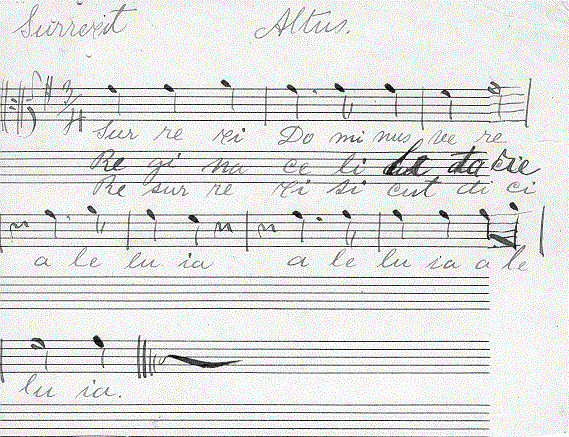 Surrexit Altus.
3/4
Sur re xi Do mi nus ve re
Re gi na ce li lae ta rie
Re sur re xi si cut di ci
a le lu ia a le lu ia a le
lu ia.